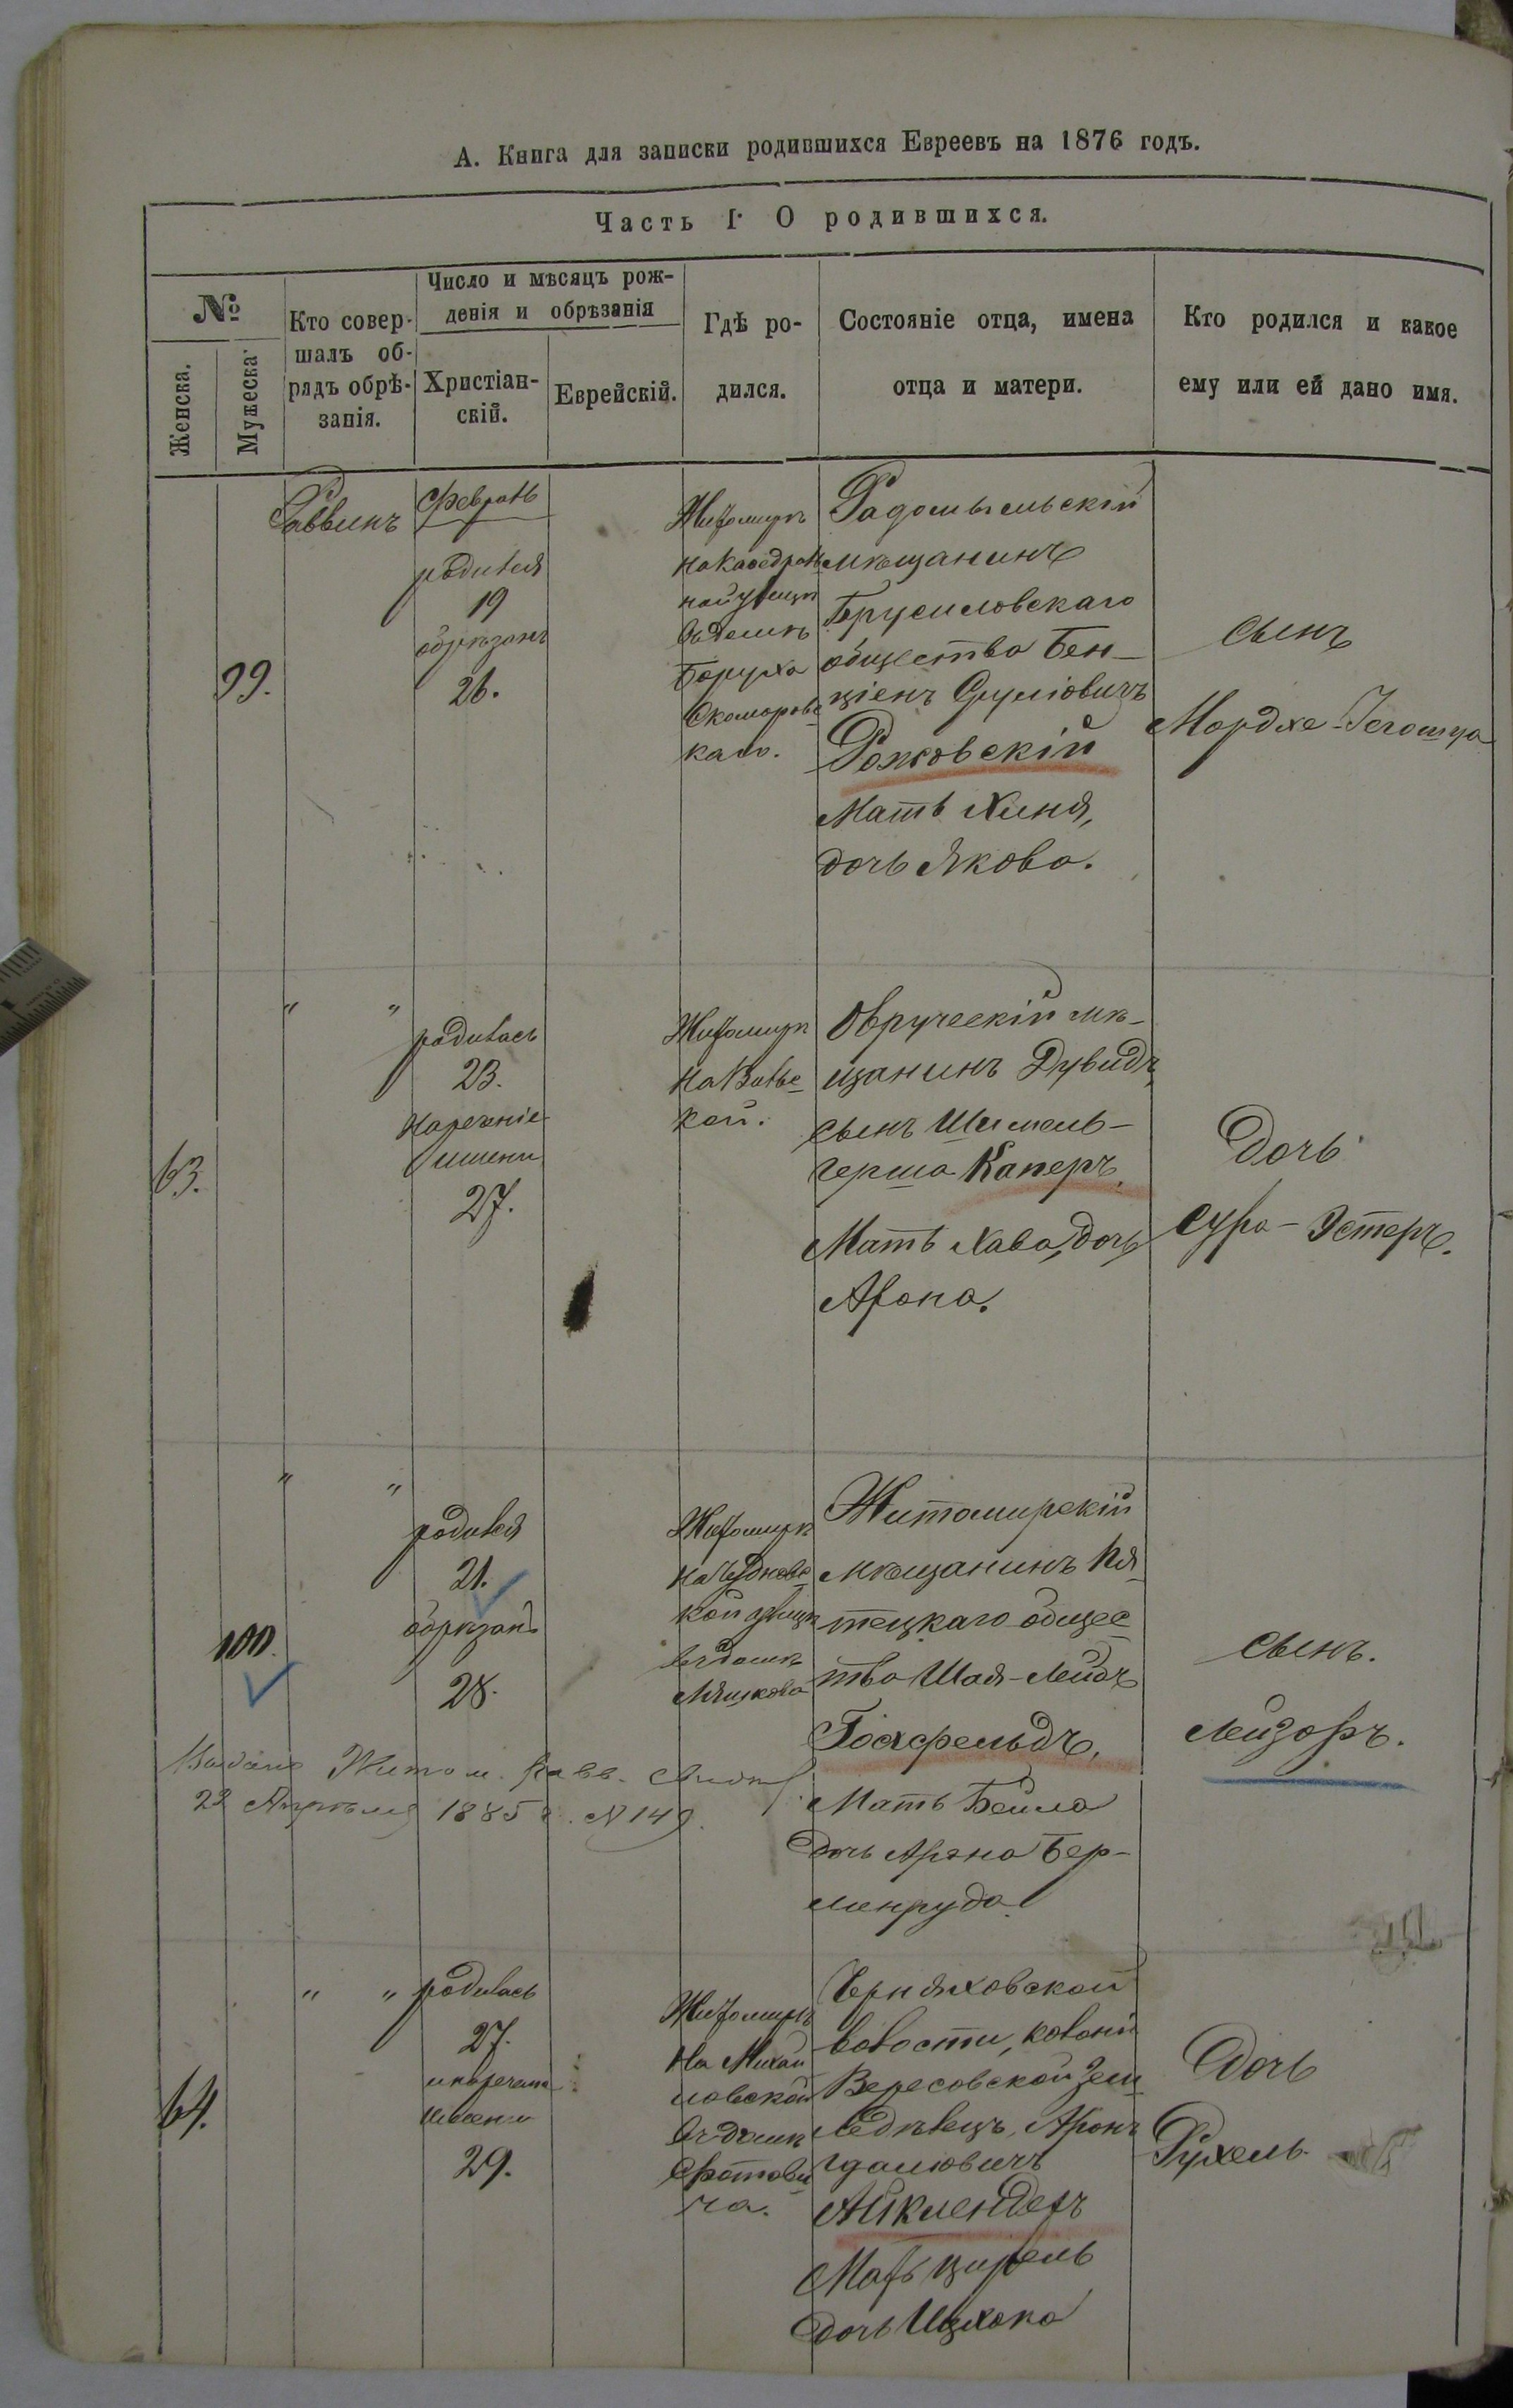 А. Книга для записки родившихся Евреевъ на 1876 годъ.
Часть I. О родившихся.
№
Женска.
Мужеска
Кто совер-
шалъ об-
рядъ обрѣ-
занія.
Число и мѣсяцъ рож-
денія и обрѣзанія
Христіан-
скій.
Еврейскій.
Гдѣ ро-
дился.
Состояніе отца, имена
отца и матери.
Кто родился и какое
ему или ей дано имя.
99.
Раввинъ
Февраль
родился
19
обрѣзанъ
26.
Житомирѣ
на Кафедраль
ной улицѣ
въ домѣ
Боруха
Скоморовс
каго.
Радомысльскій
мѣщанинъ
Брусиловскаго
общества Бен-
ціенъ Сруліовичъ
Рожовскій
Мать Хиня,
дочь Якова.
сынъ
Мордхе-Іегошуа
63.
" "
родилась
23.
Нареченіе
имени
27.
Житомирѣ
на Вильс-
кой.
Овруческій мѣ-
щанинъ Дувидъ
сынъ Шимель-
герша Каперъ.
Мать Хава, дочь
Арона.
Дочь
Сура-Эстеръ.
100.
" "
родился
21.
обрѣзанъ
28.
Житомирѣ
на Чудновс-
кой улицѣ
въ домѣ
Житомирскій
мѣщанинъ Пя-
тецкаго общес-
тва Шая-Лейбъ
Гохфельдъ,
Мать Бейла
дочь Арона Бер-
ленруда
сынъ.
Лейзоръ.
Житом. Равв.
22 Апрѣля 1885 г. N 149.
64.
" "
родилась
27.
имени
29.
Житомирѣ
на Михай
ловской
въ домѣ
ча.
Черняховской
волости, колоніи
Вересовской Зем
ледѣлецъ, Аронъ
Гдаліовичъ
Айклендеръ
Мать Цирель
дочь Ицхока
Дочь
Рухель